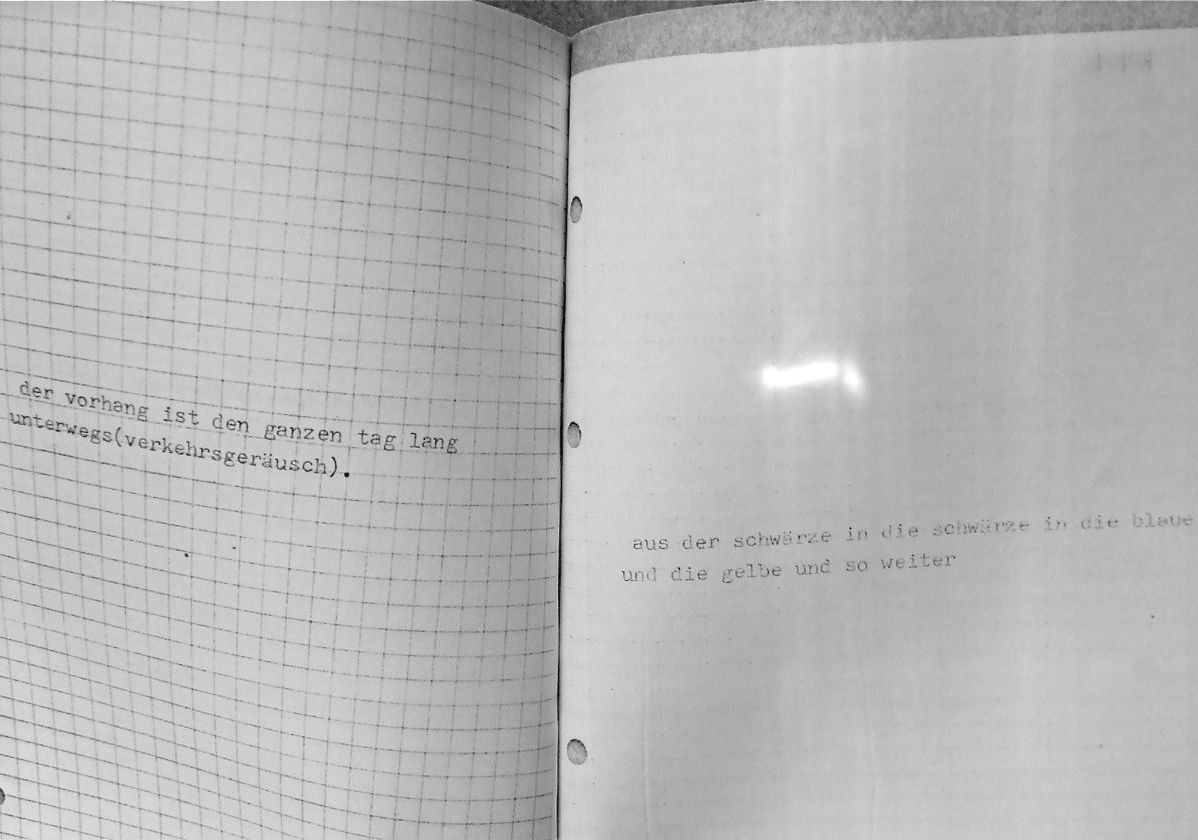 der vorhang ist den ganzen tag lang
unterwegs(verkehrsgeräusch).
aus der schwärze in die schwärze in die blaue
und die gelbe und so weiter